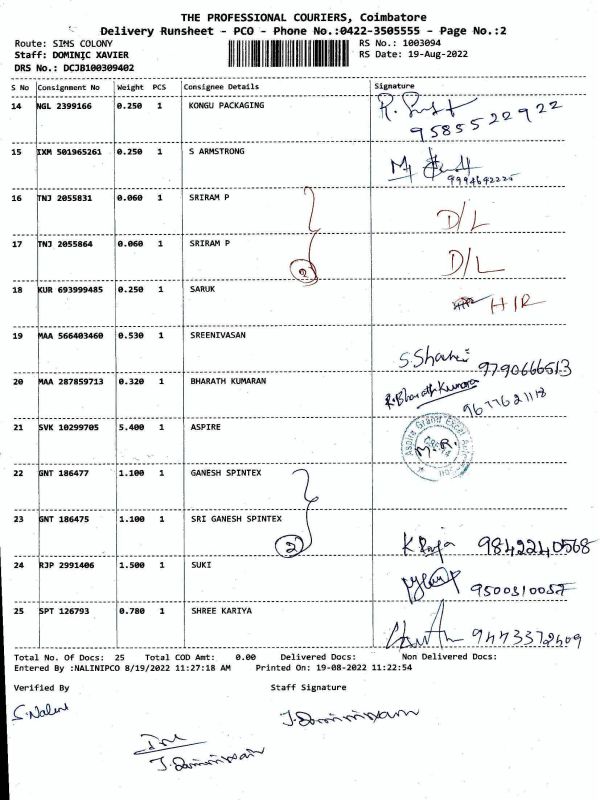 THE PROFESSIONAL COURIERS, Coimbatore
Delivery Runsheet - PCO - Phone No.:0422-3505555 - Page No.:2
Route: SINS COLONY RS No.: 1003094
Staff: DOMINIC XAVIER RS Date: 19-Aug-2022
DRS No.: DCJB100309402
S No Consignment No Weight PCS Consignee Details Signature
14 NGL 2399166 0.250 1 KONGU PACKAGING
9585522922
15 IXM 501965261 0.250 1 S ARMSTRONG
9994642225
16 TNJ 2055831 0.060 1 SRIRAM P D/L
17 TNJ 2055864 0.060 1 SRIRAM P D/L
2
18 KUR 693999485 0.250 1 SARUK HIR
19 MAA 566403460 0.530 1 SREENIVASAN
9790666513
20 MAA 287859713 0.320 1 BHARATH KUMARAN R. Bharath Kumara
9677621118
21 SVK 10299705 5.400 1 ASPIRE
22 GNT 186477 1.100 1 GANESH SPINTEX
23 GNT 186475 1.100 1 SRI GANESH SPINTEX
2 K Raja 9842240568
24 RJP 2991406 1.500 1 SUKI
9500310057
25 SPT 126793 0.780 1 SHREE KARIYA
9443372409
Total No. Of Docs: 25 Total COD Amt: 0.00 Delivered Docs: Non Delivered Docs:
Entered By :NALINIPCO 8/19/2022 11:27:18 AM Printed On: 19-08-2022 11:22:54
Verified By Staff Signature
S. Nalini